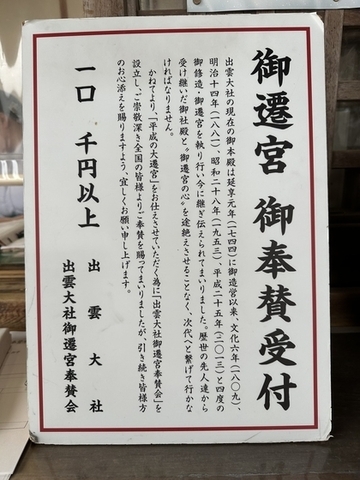 御遷宮 御奉賛受付
出雲大社の現在の御本殿は延享元年(一七四四)に御造営以来、文化六年(一八〇九)、
明治十四年(一八八一)、昭和二十八年(一九五三)、平成二十五年(二〇一三)と四度の
御修造・御遷宮を執り行い今に継ぎ伝えられてまいりました。歴世の先人達から
受け継いだ御社殿と“御遷宮の心”を途絶えさせることなく、次代へと繋げて行かな
ければなりません。
かねてより、「平成の大遷宮」をお仕えさせていただく為に「出雲大社御遷宮奉賛会」を
設立し、ご崇敬深き全国の皆様よりご奉賛を賜ってまいりましたが、引き続き皆様方
のお心添えを賜りますよう、宜しくお願い申し上げます。
一口 千円以上
出雲大社
出雲大社御遷宮奉賛会